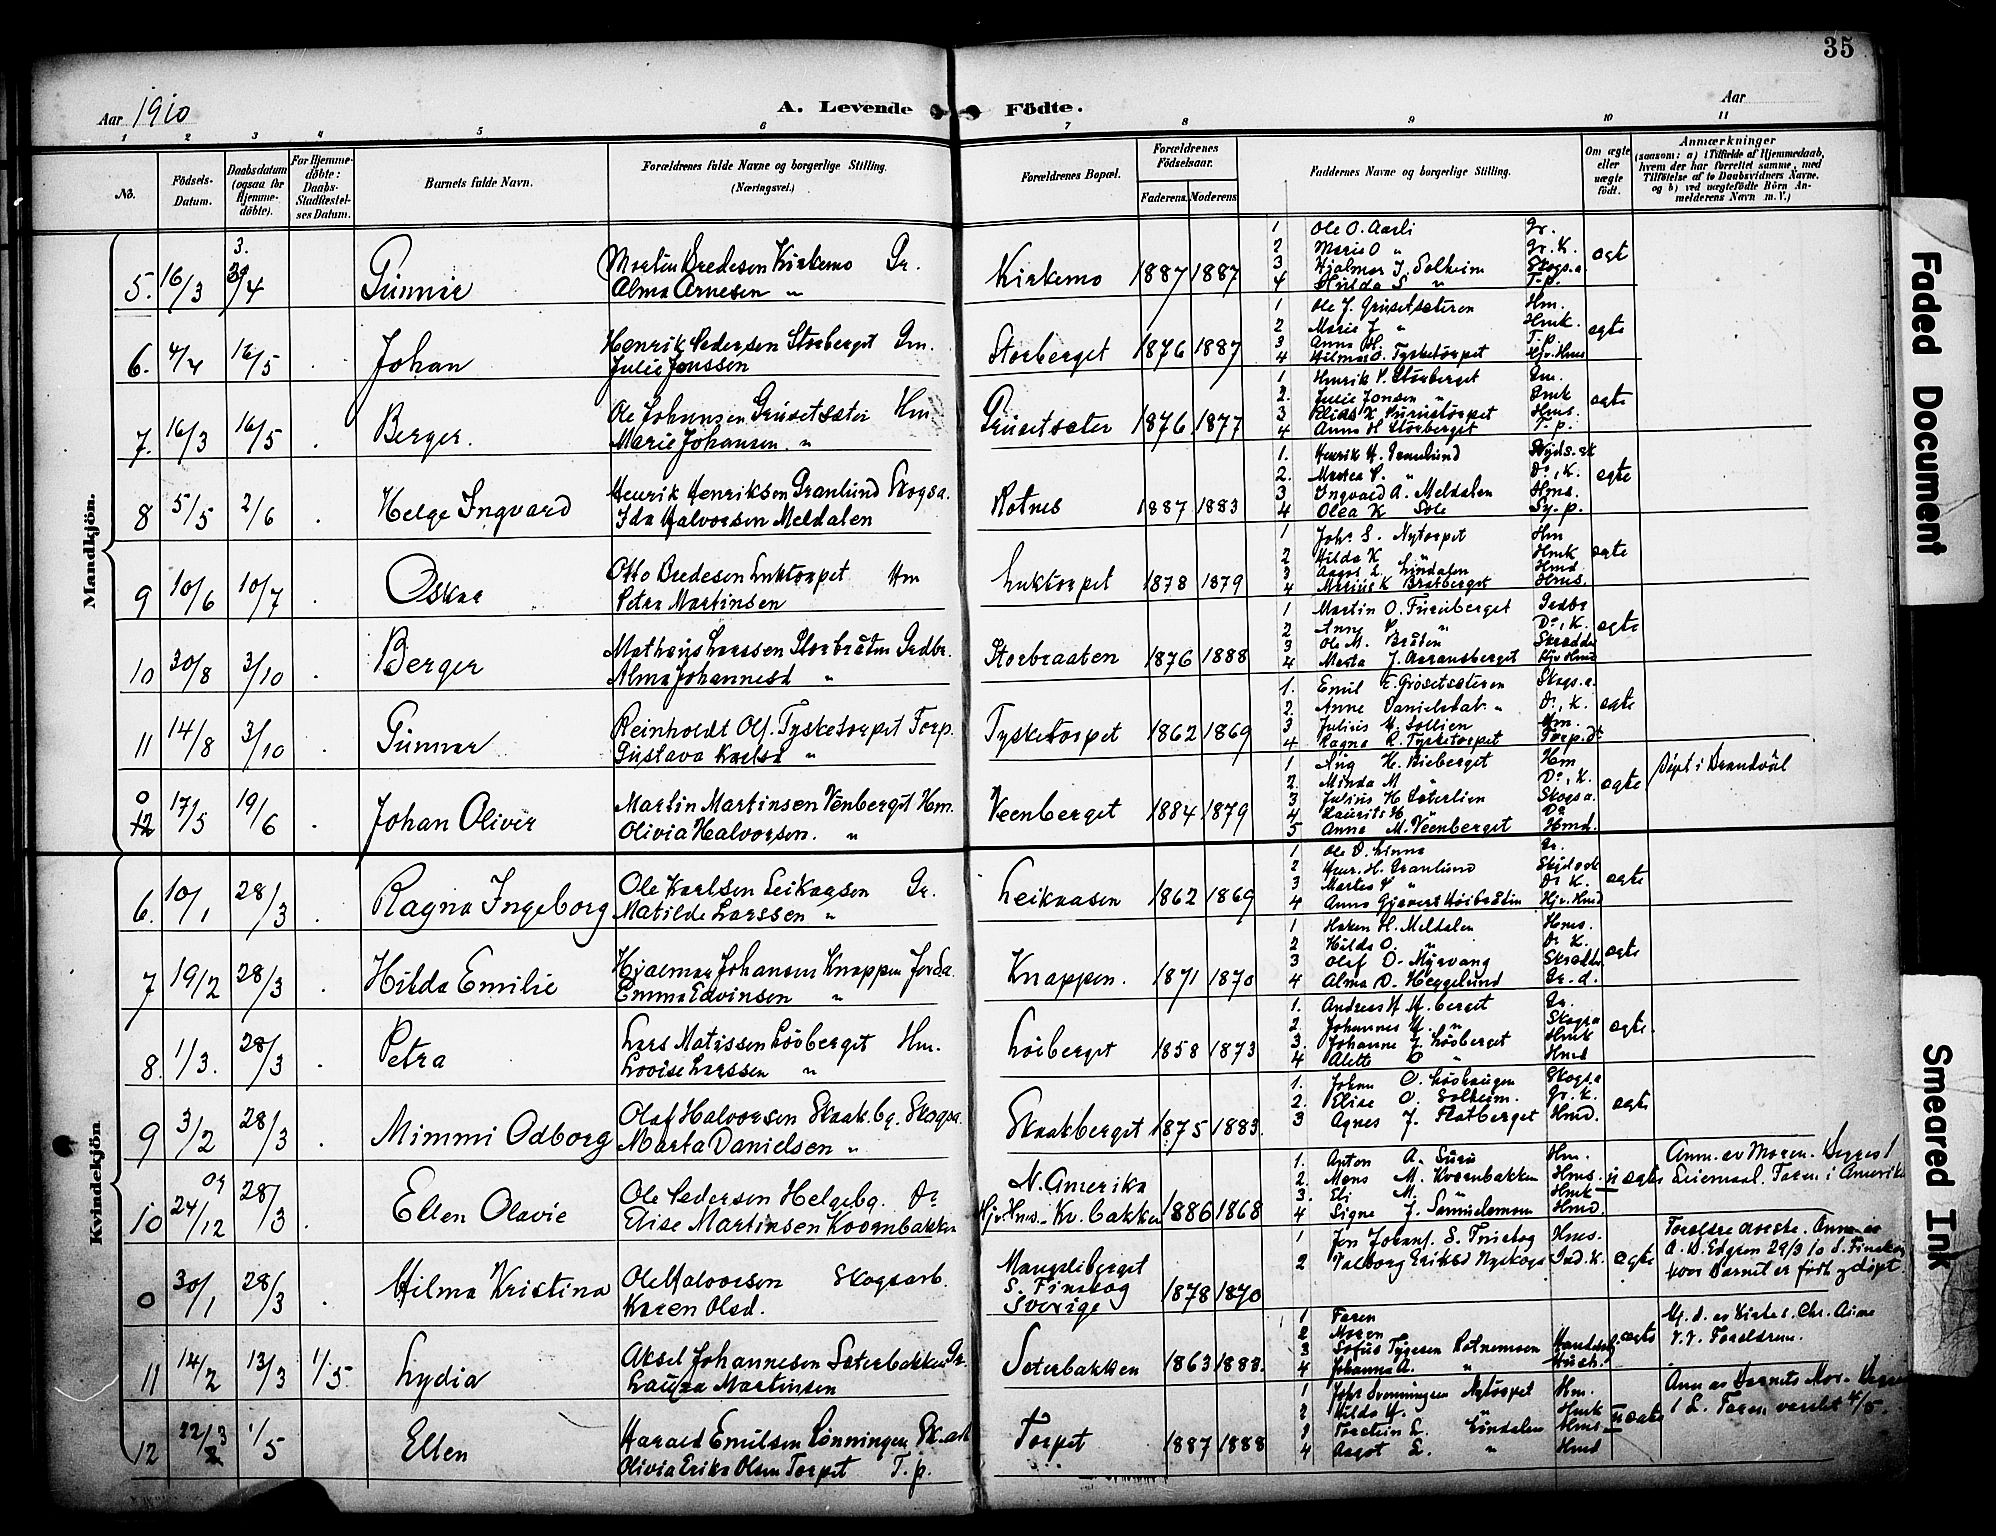 35
Aar 1910
A. Levende Födte.
Aar
1 2 3 4 5 6 7 8 9 10 11
No.
Födsels-Datum.
Daabsdatum (ogsaa for Hjemme-döbte).
For Hjemme-döbte: Daabs-Stadfestel-ses Datum.
Barnets fulde Navn.
Forældrenes fulde Navne og borgerlige Stilling. (Næringsvei.)
Forældrenes Bopæl.
Forældrenes Födselsaar.
Faderens. Moderens.
Faddernes Navne og borgerlige Stilling.
Om ægte eller uægte födt.
Anmærkninger
(saasom: a) i Tilfælde af Hjemmedaab, hvem der har forrettet samme, med Tilföielse af to Daabsvidners Navne. og b) ved uægtefödte Börn An-melderens Navn m. V.)
Mandkjön.
5. 16/3 3/4 Gunnar
Morten Bredesen Kirkemo Gr.
Alma Arnesen "
Kirkemo 1887 1887
1 Ole O. Aasli Gr.
2 Marie O " Gr. K.
3 Hjalmar J. Solheim Skogs.a
4 Hulda S " T.p.
ægte
6. 4/4 16/5 Johan
Henrik Pedersen Storberget Gm.
Julie Jonssen
Storberget 1876 1887
1 Ole J. Grusetsæteren Hm.
2 Marie J " Hmk.
3 Anna H. T.p.
4 Hilma O. Tysketorpet Hjv. Hms
ægte
7. 16/3 16/5 Berger.
Ole Johansen Grusetsæter Hm
Marie Johansen. "
Grusetsæter 1876 1877
1 Henrik P. Storberget Gm.
2. Julie Jonsen " Gmk
3 Elias K. Purustorpet Hms.
4 Anna H Storberget T.p.
ægte
8 5/5 2/6 Helge Ingvard
Henrik Henriksen Granlund Skogsa.
Ida Halvorsen Meldalen
Rotnes 1887 1883
1. Henrik H. Granlund
2. Martea P. " Do, K.
3 Ingvald A. Meldalen Hms.
4 Olea K Sole Sy.p.
ægte
9 10/6 10/7 Oskar
Otto Bredesen Luktorpet Hm
Petra Martinsen
Luktorpet 1878 1879
1 Johs S. Nytorpet Hm
2 Hilda K " Hmk
3 Aasot L. Lindalen Hmd
4 Marius K Bratberget Hms.
ægte
10 30/8 3/10 Berger
Mathæus Larssen Storbråten Grdbr.
Alma Johannesd "
Storbraaten 1876 1888
1 Martin O. Furuberget Grdbr
2 Anne P. " Do, K.
3 Ole M. Bråten Skrædder
4 Marta J. Aaransberget Hjv. Hmd
ægte
11 14/8 3/10 Gunnar
Reinholdt Olf. Tysketorpet Torp.
Gustava Karlsd "
Tysketorpet 1862 1869
1. Emil E. Grøsetsæteren Skogs.a.
2. Anne Danielsdat. " Do, K.
3 Julius M. Sollien Hm.
4 Ragna R. Tysketorpet Torp.dt
ægte
0 12 17/5 19/6 Johan Oliver
Martin Martinsen Venberget Hm.
Olivia Halvorsen. "
Veenberget 1884 1879
1 Aug H. Bieberget Hm
2. Minda M " Do, K.
3 Julius H Sæterlien Skogsa.
4 Laurits H Do
5 Anna M. Veenberget Hmd.
ægte
Døpt i Brandvål
Kvindekjön.
6. 10/1 28/3 Ragna Ingeborg
Ole Karlsen Leikaasen Gr.
Matilde Larssen "
Leikaasen 1862 1869
1 Ole O. Linna Gr.
2 Henr. H. Granlund
3 Martea P " Do K.
4 Anna Hjv. Hmd
ægte
7 19/2 28/3 Hilda Emilie
Hjalmar Johansen Knappen Jorda.
Emma Edvinsen "
Knappen. 1871 1870
1 Haken H. Meldalen Hms.
2 Hilda O. " Do K.
3 Olaf O. Myrvang Skrædder
4 Alma O. Heggelund Gr. d.
ægte
8. 1/3. 28/3 Petra
Lars Matissen Løvberget Hm.
Lovise Larssen "
Løvberget 1858 1873
1. Andreas H. M. berget Gr.
2. Johannes H. " Skogsa
3. Johanne J. Løvberget Hmk
4 Alette O " Hmd
ægte.
9 3/2 28/3 Mimmi Odborg
Olaf Halvorsen Skaakbg. Skogsa.
Marta Danielsen "
Skaakberget 1875 1883.
1. Johan O. Løvhaugen Skogs.a
2. Elise O. Solheim. Gr. k.
3 Agnes J. Flatberget Hmd.
ægte
10 24/12 09 28/3 Ellen Olavie
Ole Pedersen Helgebg. Do
Elise Martinsen Kvernbakken
N. Amerika
Hjv. Hms. Kv. bakken 1886 1868
1. Anton A. Suru Hm.
2. Mons M. Kvernbakken Hms.
3. Eli M. " Hmk
4 Signe J. Samuelsmoen Hmd.
uægte
Anm. av Moren. Begges 1 Leiermaal. Faren i Amerika
0 30/1 28/3 Hilma Kristina
Ole Halvorsen Skogsarb.
Karen Olsd.
Mangsliberget
S. Finskog
Sverige 1878 1870
1 Jon Johans. S. Finskog Hms.
2 Valborg Eriksd Nyskoga Ind. K.
ægte
Foreldre norske. Anm. av A. D. Edgren 29/3 10 S. Finskog hvor Barnet er født og døpt.
11 14/2 13/3 1/5. Lydia
Aksel Johannesen Sæterbakken Gr.
Laura Martinsen
Sæterbakken 1863 1888.
1 Faren
2 Moren
3 Sofus Tygesen Rotnemoen
4 Johanna A. " Hustr.
ægte
Hj. d. av Kirkes. Chr. Aime V. V. Foreldrene.
12 22/3 1/5 Ellen
Harald Emilsen Lønningen Sk. arb
Olivia Eriks Olsen Torpet T. p.
Torpet 1887 1888
1 Johs Svenningsen Nytorpet Hm.
2 Hilda K. " Hmk
3 Torstein L. Lindalen Hms
4 Aasot L. " Hmd
uægte
Anm av Barnets Mor. Begges 1 L. Faren varslet 4/5.
Faded Document
Smeared Ink